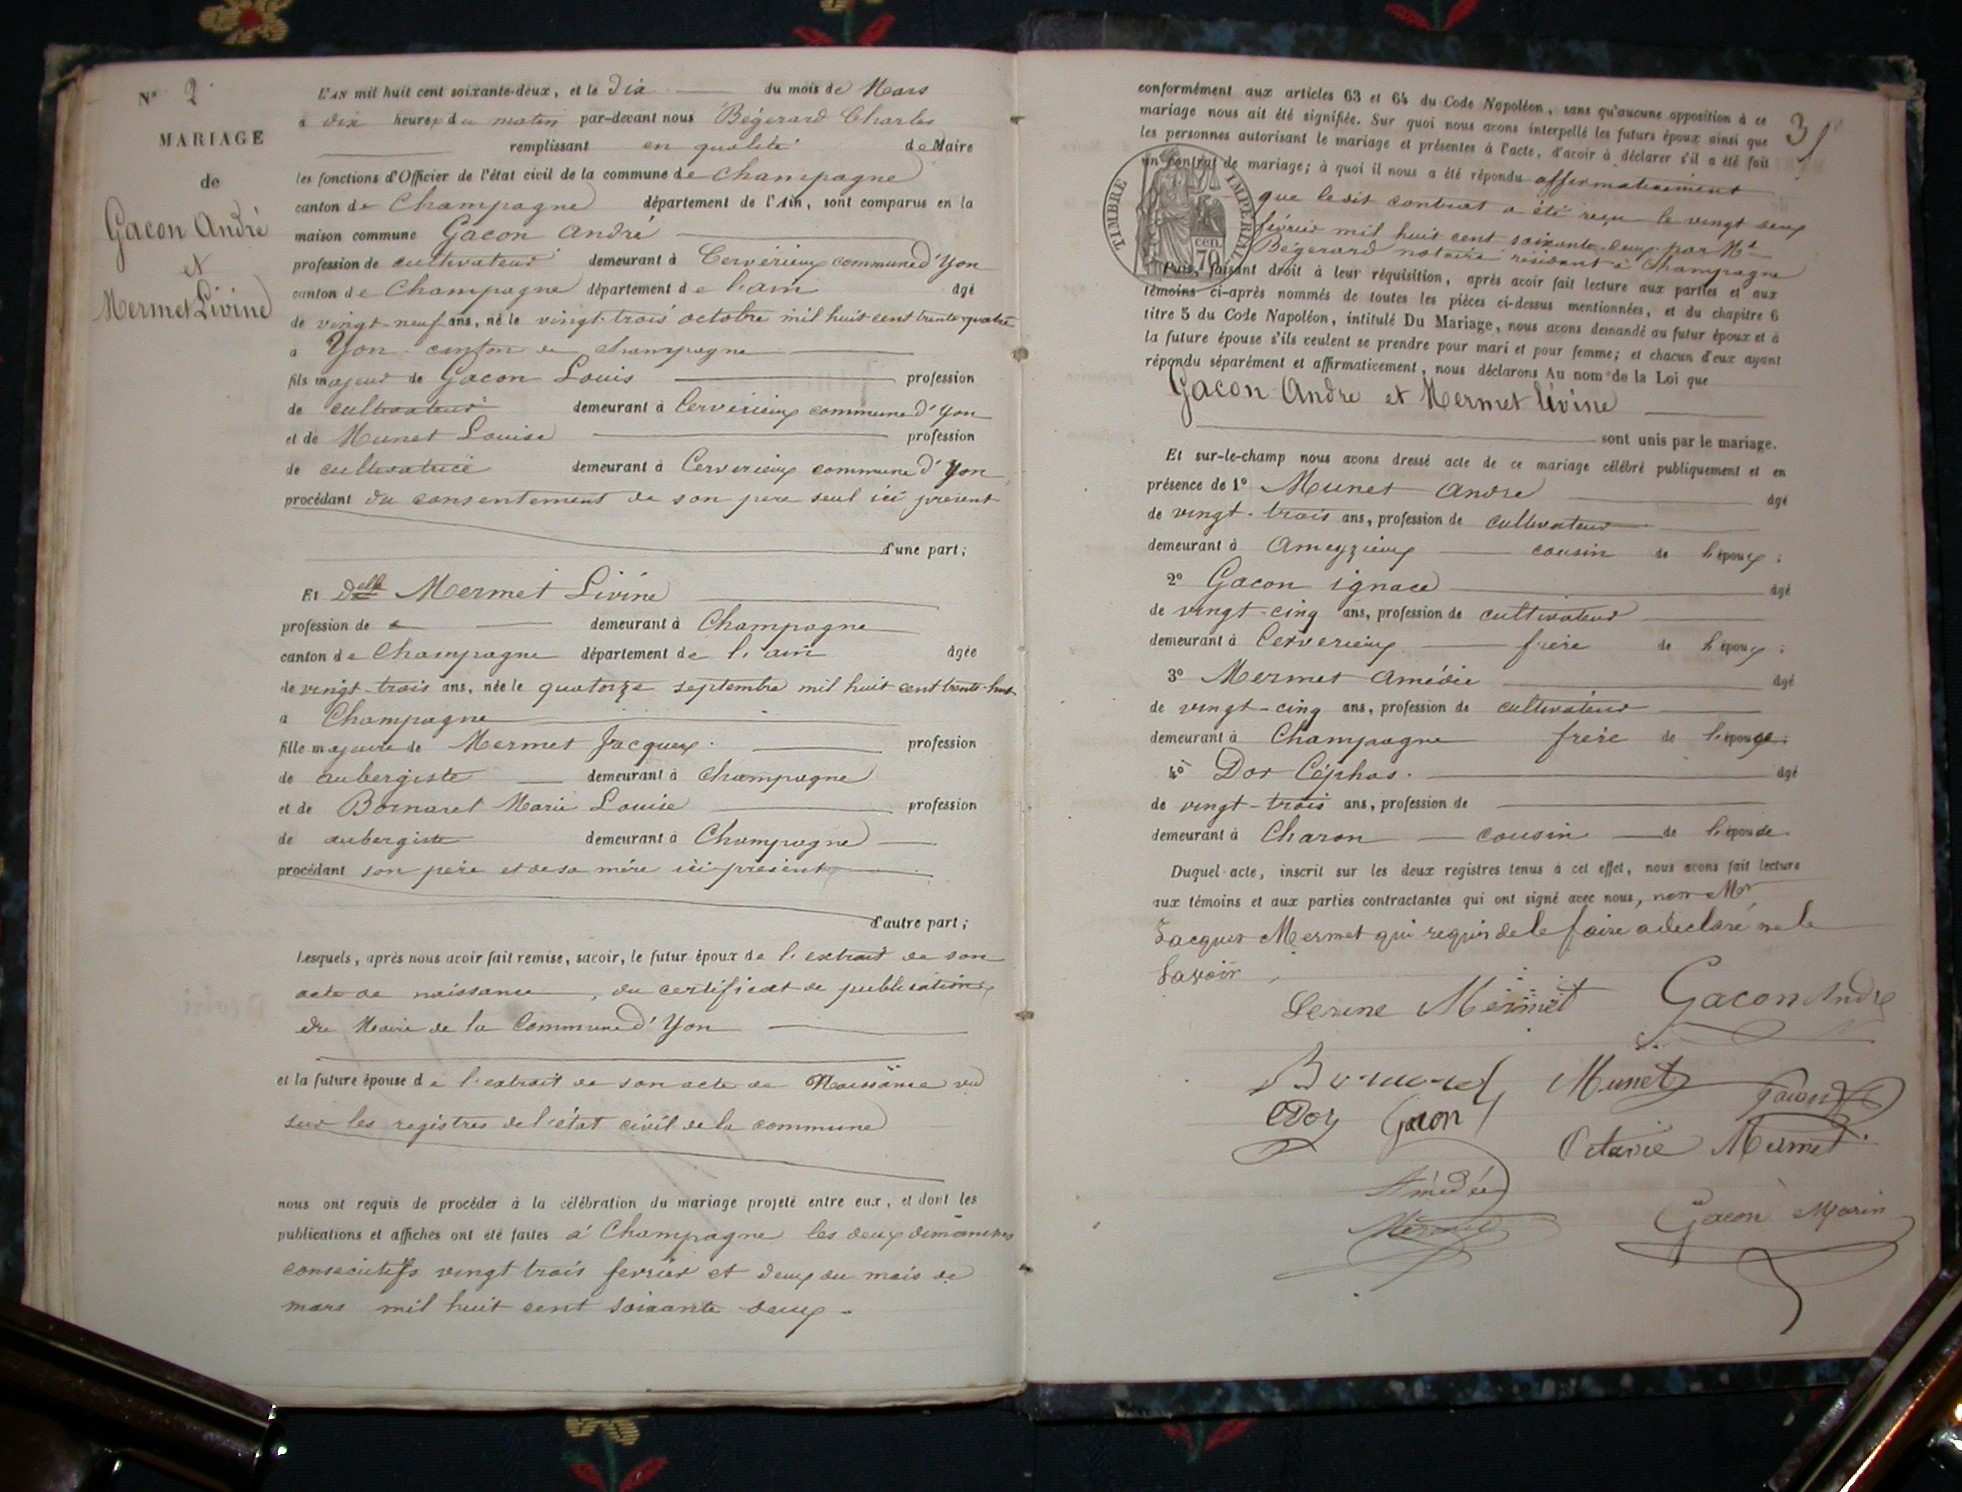 N° 2
MARIAGE
de
Gacon André
et
Mermet Livine
L'AN mil huit cent soixante-deux, et le Dix du mois de Mars
à dix heures du matin par-devant nous Bégerard Charles
remplissant en qualité de Maire
les fonctions d'Officier de l'état civil de la commune de Champagne
canton de Champagne département de l'Ain, sont comparus en la
maison commune Gacon André
profession de cultivateur demeurant à Cerverieux commune d'Yon
canton de Champagne département de l'ain âgé
de vingt-neuf ans, né le vingt-trois octobre mil huit cent trente quatre
à Yon canton de champagne
fils majeur de Gacon Louis profession
de cultivateur demeurant à Cerverieux commune d'Yon
et de Munet Louise profession
de cultivatrice demeurant à Cerverieux commune d'Yon
procédant du consentement de son pere seul ici présent
d'une part;
Et Delle Mermet Livine
profession de demeurant à Champagne
canton de Champagne département de l'ain âgée
de vingt-trois ans, née le quatorze septembre mil huit cent trente-huit
à Champagne
fille majeure de Mermet Jacques profession
de aubergiste demeurant à Champagne
et de Bornaret Marie Louise profession
de aubergiste demeurant à Champagne
procédant son père et de sa mére ici présent
d'autre part;
Lesquels, après nous avoir fait remise, savoir, le futur époux de l'extrait de son
acte de naissance, du certificat de publications
du Maire de la Commune d'Yon
et la future épouse de l'extrait de son acte de Naissance vu
sur les registres de l'état civil de la commune
nous ont requis de procéder à la célébration du mariage projeté entre eux, et dont les
publications et affiches ont été faites à Champagne les deux dimanches
consécutifs vingt trois fevrier et deux du mois de
mars mil huit cent soixante deux
31
conformément aux articles 63 et 64 du Code Napoléon, sans qu'aucune opposition à ce
mariage nous ait été signifiée. Sur quoi nous avons interpellé les futurs époux ainsi que
les personnes autorisant le mariage et présentes à l'acte, d'avoir à déclarer s'il a été fait
un contrat de mariage; à quoi il nous a été répondu affirmativement
que ledit contrat a été reçu le vingt deux
février mil huit cent soixante deux par Me
Bégerard notaire résidant à Champagne
TIMBRE IMPERIAL
70 cen
Puis, faisant droit à leur réquisition, après avoir fait lecture aux parties et aux
témoins ci-après nommés de toutes les pièces ci-dessus mentionnées, et du chapitre 6
titre 5 du Code Napoléon, intitulé Du Mariage, nous avons demandé au futur époux et à
la future épouse s'ils veulent se prendre pour mari et pour femme; et chacun d'eux ayant
répondu séparément et affirmativement, nous déclarons Au nom de la Loi que
Gacon André et Mermet Livine
sont unis par le mariage.
Et sur-le-champ nous avons dressé acte de ce mariage célébré publiquement et en
présence de 1° Munet André âgé
de vingt-trois ans, profession de cultivateur
demeurant à Ameyzieux cousin de l'époux;
2° Gacon ignace âgé
de vingt-cinq ans, profession de cultivateur
demeurant à Cerverieux frère de l'époux;
3° Mermet Amédée âgé
de vingt-cinq ans, profession de cultivateur
demeurant à Champagne frère de l'épouse;
4° Doy Céphas. âgé
de vingt-trois ans, profession de
demeurant à Charon cousin de l'épouse.
Duquel acte, inscrit sur les deux registres tenus à cet effet, nous avons fait lecture
aux témoins et aux parties contractantes qui ont signé avec nous, non Mr
Jacques Mermet qui requis de le faire a déclaré ne le
savoir
Levine Mermet Gacon André
Bornaret Munet Gacon
Doy Gacon
Octavie Mermet
Amédée
Mermet
Gacon Marin